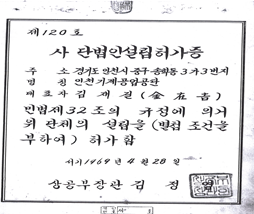 제120호
사단법인설립허가증
주 소 경기도 인천시 중구 송학동 3가 3번지
명 칭 인천기계공업공단
대표자 김재길 (金在吉)
민법제32조의 규정에 의거
위 단체의 설립을 (별첨 조건을
부하여) 허가함
서기 1969년 4월 28일
상공부장관 김 정